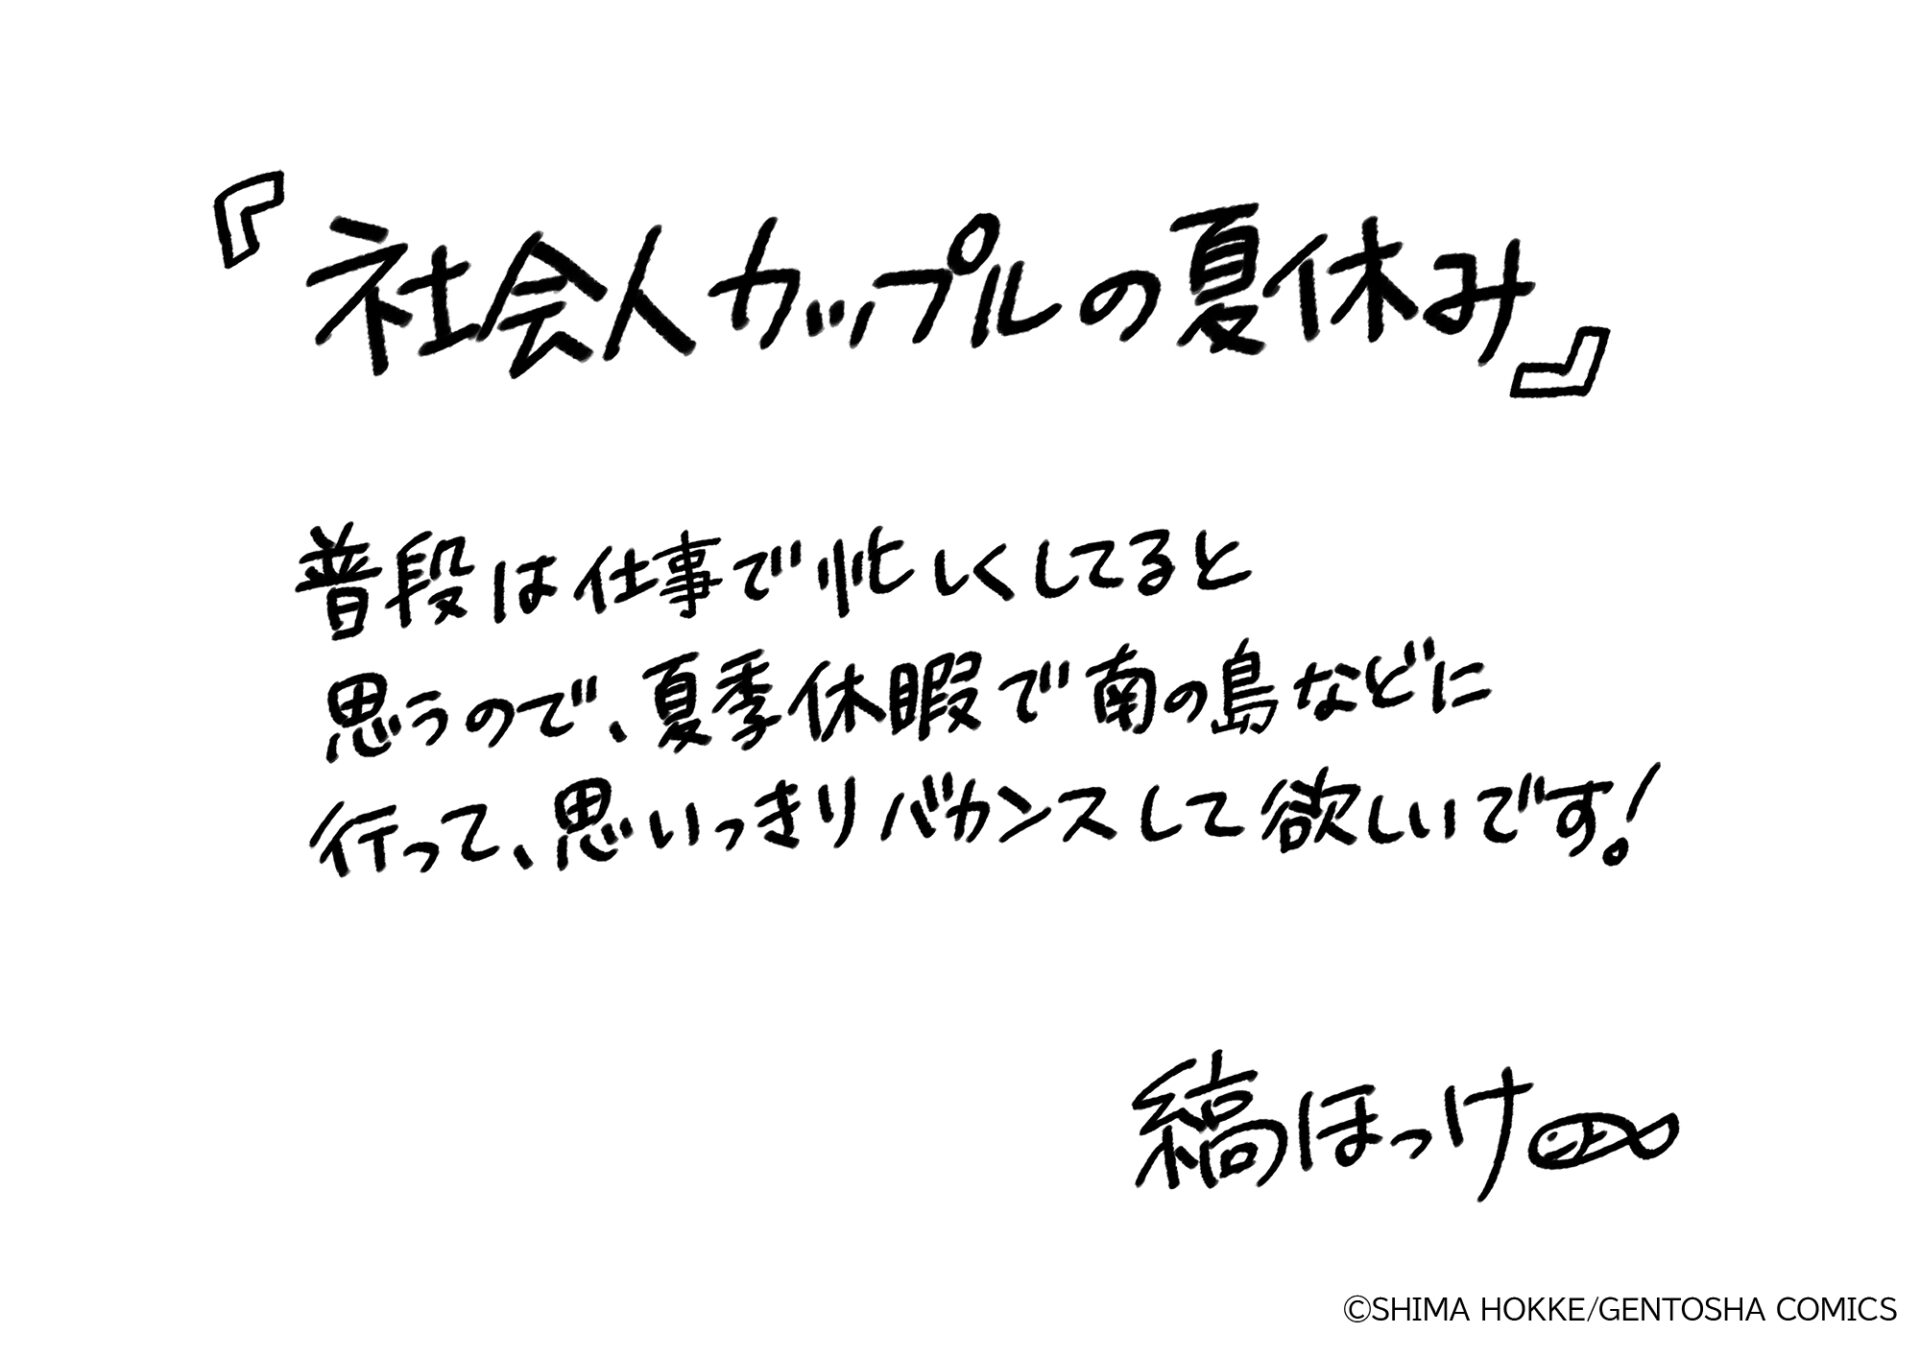 『社会人カップルの夏休み』
普段は仕事で忙しくしてると
思うので、夏季休暇で南の島などに
行って、思いっきりバカンスして欲しいです!
縞ほっけ
©SHIMA HOKKE/GENTOSHA COMICS